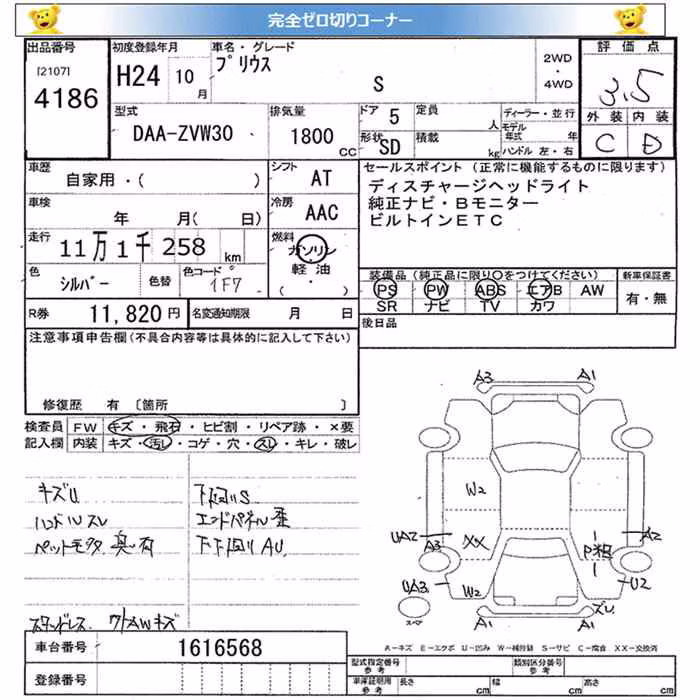 完全ゼロ切りコーナー
出品番号
[2107]
4186
初度登録年月
H24 10 月
車名・グレード
プリウス
S
2WD
・
4WD
評価点
3.5
外装 内装
C D
型式
DAA-ZVW30
排気量
1800
CC
ドア 5
形状 SD
定員
人
積載
kg
ディーラー・並行
モデル
年式 年
ハンドル 左・右
車歴
自家用・( )
シフト
AT
車検
年 月( 日)
冷房
AAC
走行
11万1千258 km
燃料
ガソリン
・
軽油
( ・ )
色
シルバー
色替
色コード
1F7
R券 11,820 円
名変通知期限 月 日
セールスポイント(正常に機能するものに限ります)
ディスチャージヘッドライト
純正ナビ・Bモニター
ビルトインETC
装備品(純正品に限り○をつけてください)
新車保証書
PS PW ABS エアB AW
SR ナビ TV カワ
有・無
後日品
注意事項申告欄(不具合内容等は具体的に記入して下さい)
修復歴 有 〔箇所 〕
検査員
記入欄
FW キズ・飛石・ヒビ割・リペア跡・×要
内装 キズ・汚れ・コゲ・穴・スレ・キレ・破レ
キズU
ハンドルスレ
ペットモウタ 臭 有
スタッドレス フルAWキズ
下回りS
エンドパネル歪
下下回りAU
A3 A1
W2
UA2
A3
XX
UA3
W2
A2
P粗
U2
ズレ
A1 A1
スペア
A-キズ E-エクボ U-凹み W-補修跡 S-サビ C-腐食 XX-交換済
車台番号 1616568
登録番号
型式指定番号
参考
類別区分番号
参考
車庫証明用
参考
長さ cm
幅 cm
高さ cm